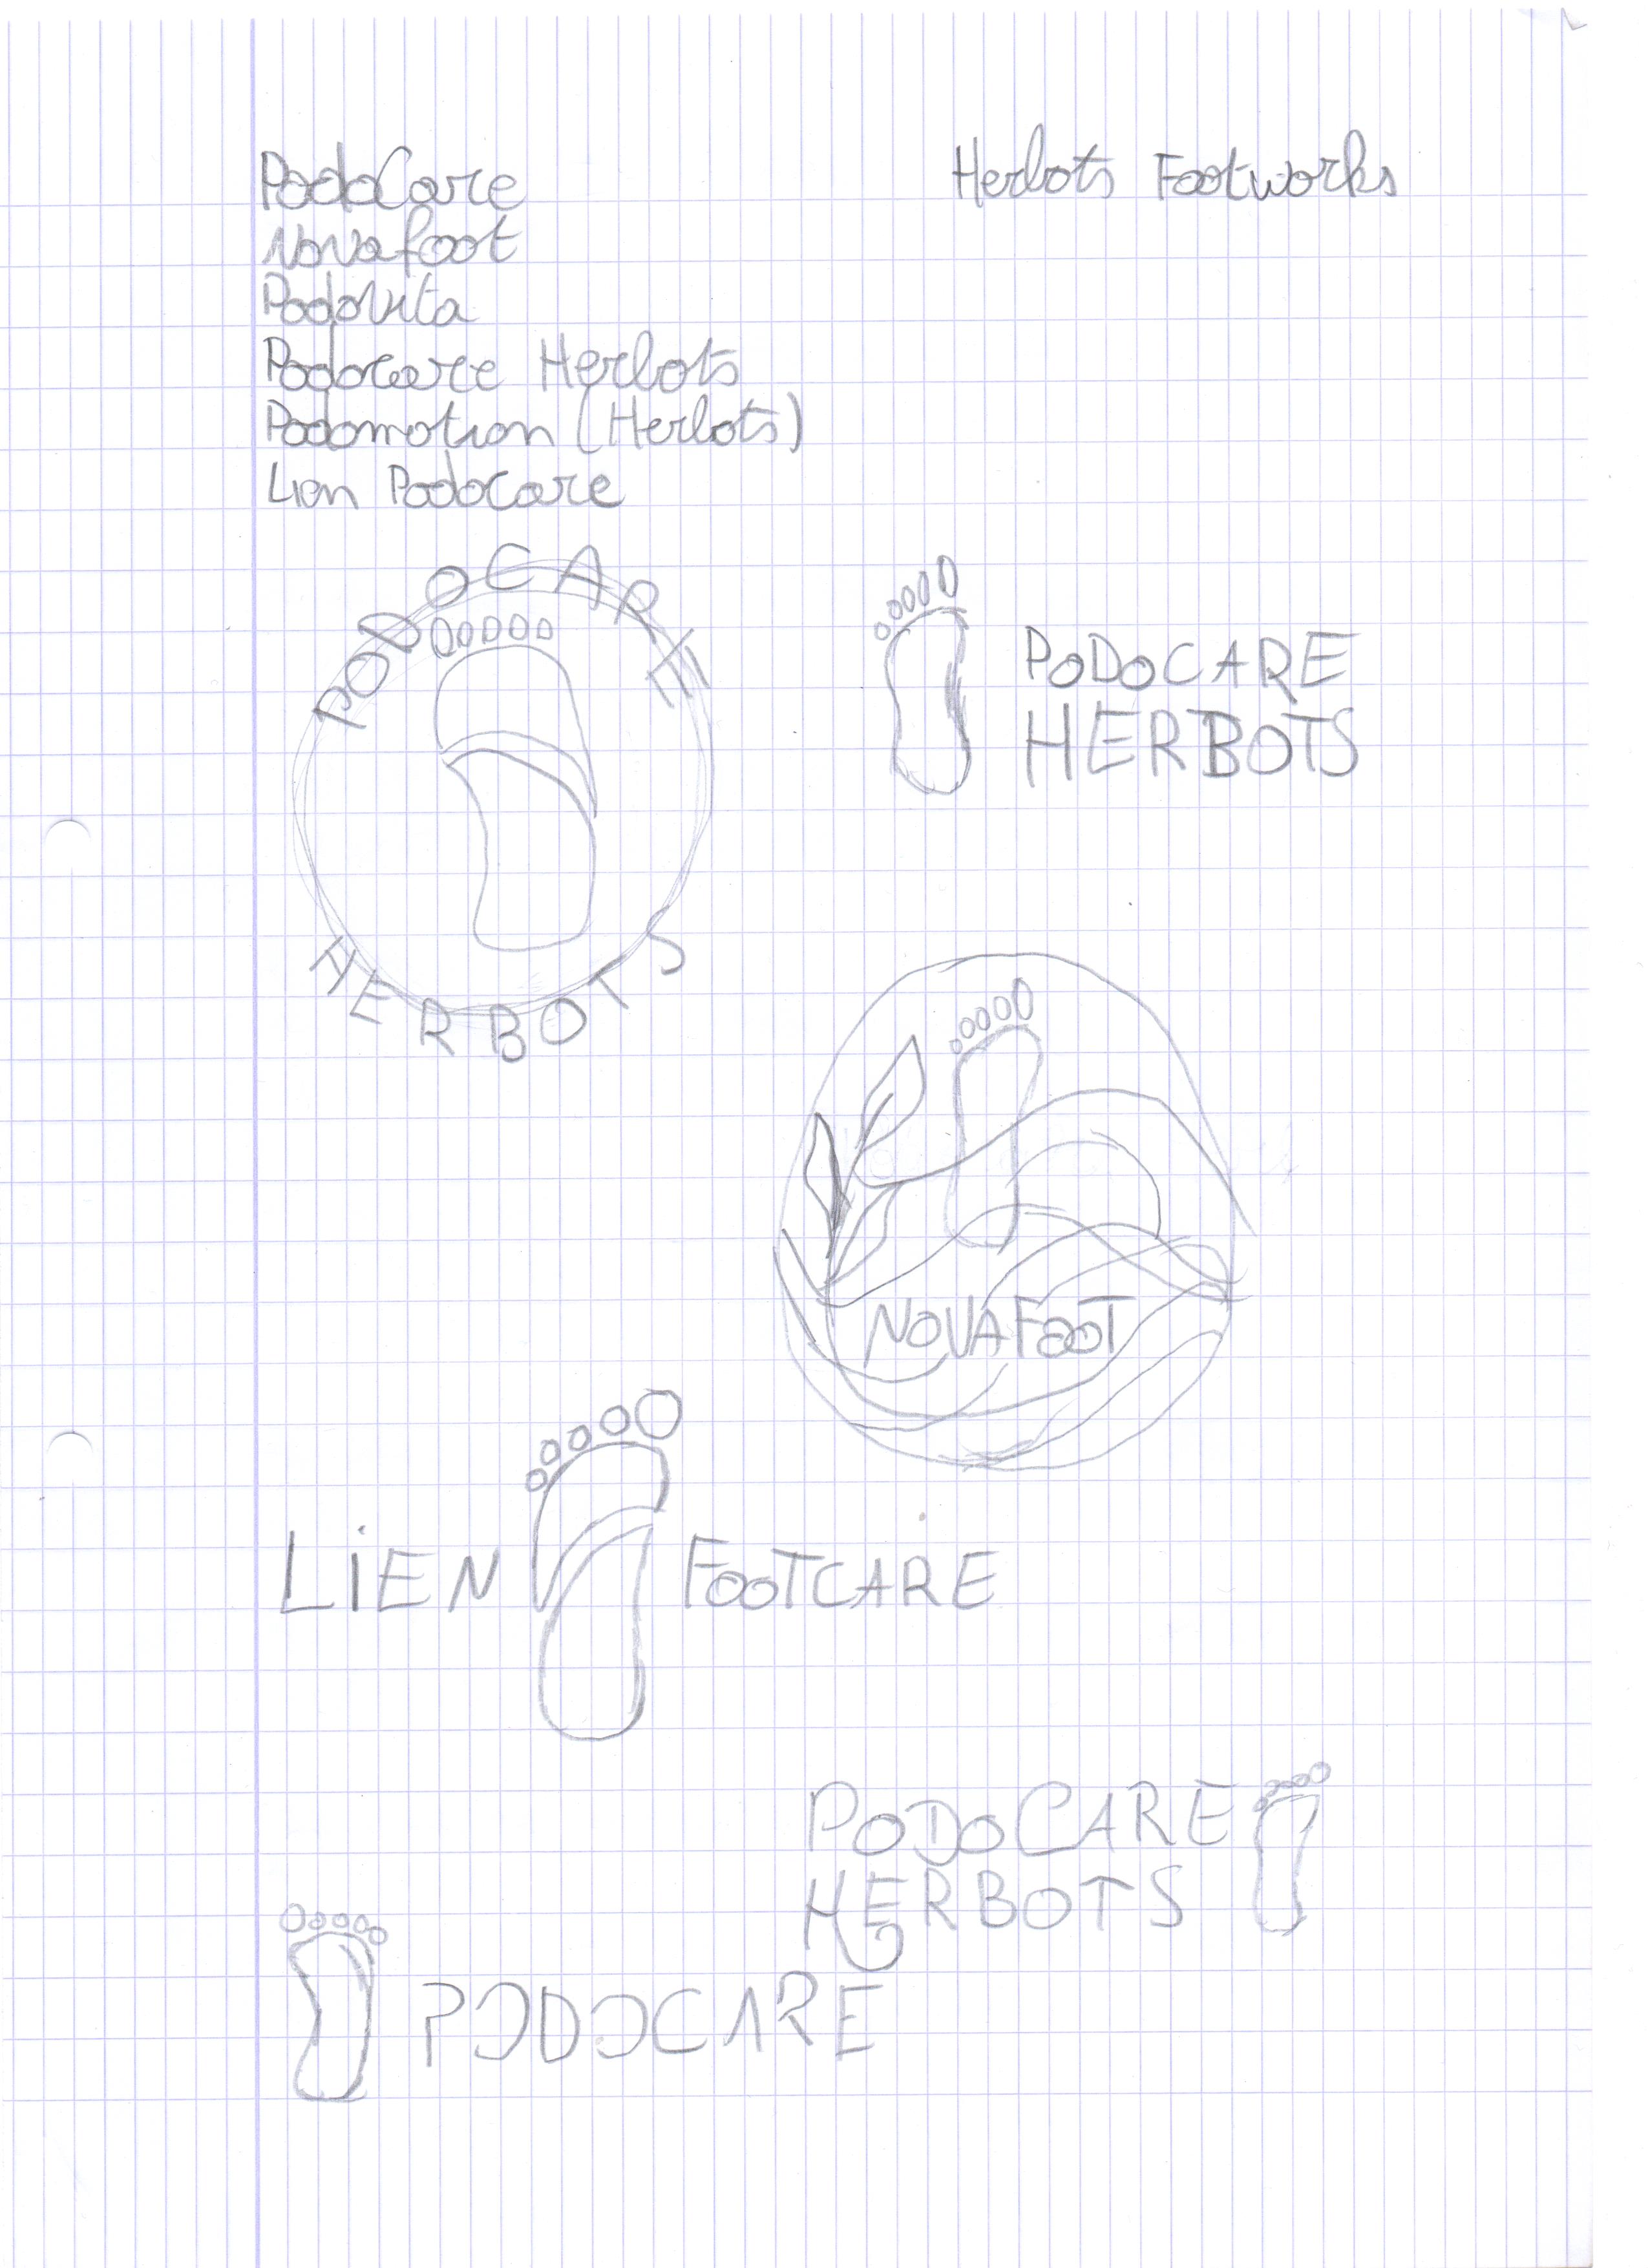 PodoCare
Novafoot
PodoVita
Podocare Herbots
Podomotion (Herbots)
Lien Podocare
Herbots Footworks
PODOCARE
HERBOTS
PODOCARE
HERBOTS
NOVAFOOT
LiEN FOOTCARE
PODOCARE
HERBOTS
PODOCARE